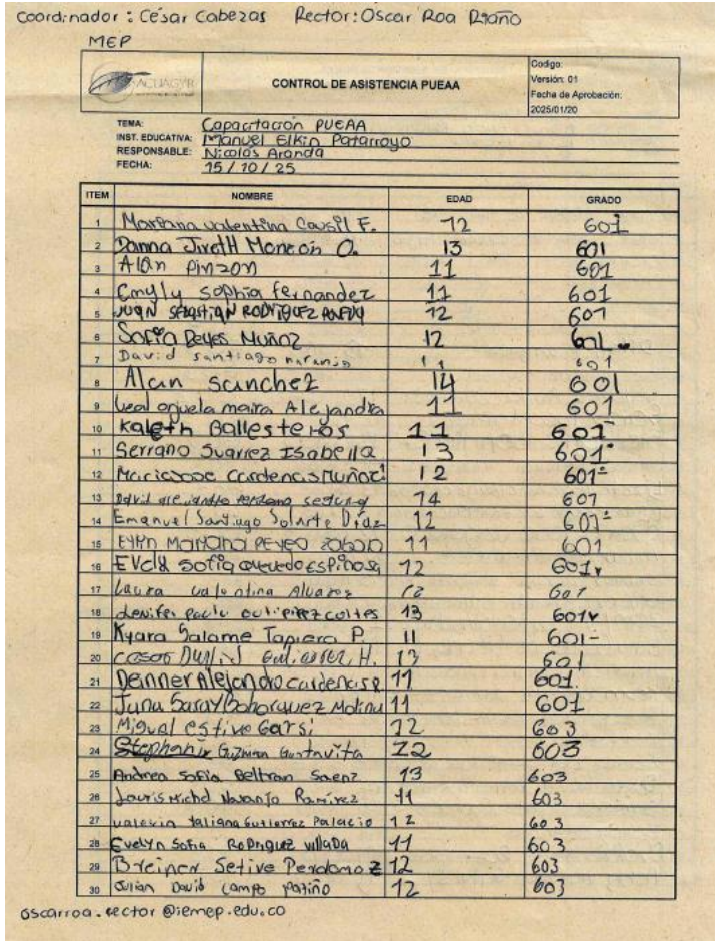 Coordinador: César Cabezas Rector: Oscar Roa Riaño
MEP
ACUAGYR
CONTROL DE ASISTENCIA PUEAA
Codigo:
Versión: 01
Fecha de Aprobación:
2025/01/20
TEMA: Capacitación PUEAA
INST. EDUCATIVA: Manuel Elkin Patarroyo
RESPONSABLE: Nicolás Aranda
FECHA: 15/10/25
ITEM NOMBRE EDAD GRADO
1 Mariana valentina Causil F. 12 601
2 Danna Jireth O. 13 601
3 Alan pinzon 11 601
4 Emyly sophia fernandez 11 601
5 JUAN SEBASTIAN RODRIGUEZ 12 601
6 Sofia Reyes Muñoz 12 601
7 David santiago naranjo 11 601
8 Alan sanchez 14 601
9 Leal orjuela maira Alejandra 11 601
10 Kaleth Ballesteros 11 601
11 Serrano Suarrez Isabella 13 601
12 Mariajose Cardenas Muñoz 12 601
13 David alejandro 14 601
14 Emanuel Santiago Solarte Díaz 12 601
15 Mariana 11 601
16 sofia espinosa 12 601
17 Laura valentina Alvarez 12 601
18 paola coltes 13 601
19 Kyara Salome Tapiera P. 11 601
20 H. 13 601
21 Deinner Alejandro cardenas 11 601
22 Saray Bohorquez Molina 11 601
23 Migual estive Garsi 12 603
24 Stephania Guzman Gustavita 12 603
25 Andrea Sofia Beltran Saenz 13 603
26 Michel Naranjo Ramirez 11 603
27 valeria taliana Gutierrez Palacio 12 603
28 Evelyn Sofia RoDriguez villaDa 11 603
29 Breiner Setive Perdomo 12 603
30 Julian David Campo patiño 12 603
oscarroa.rector@iemep.edu.co